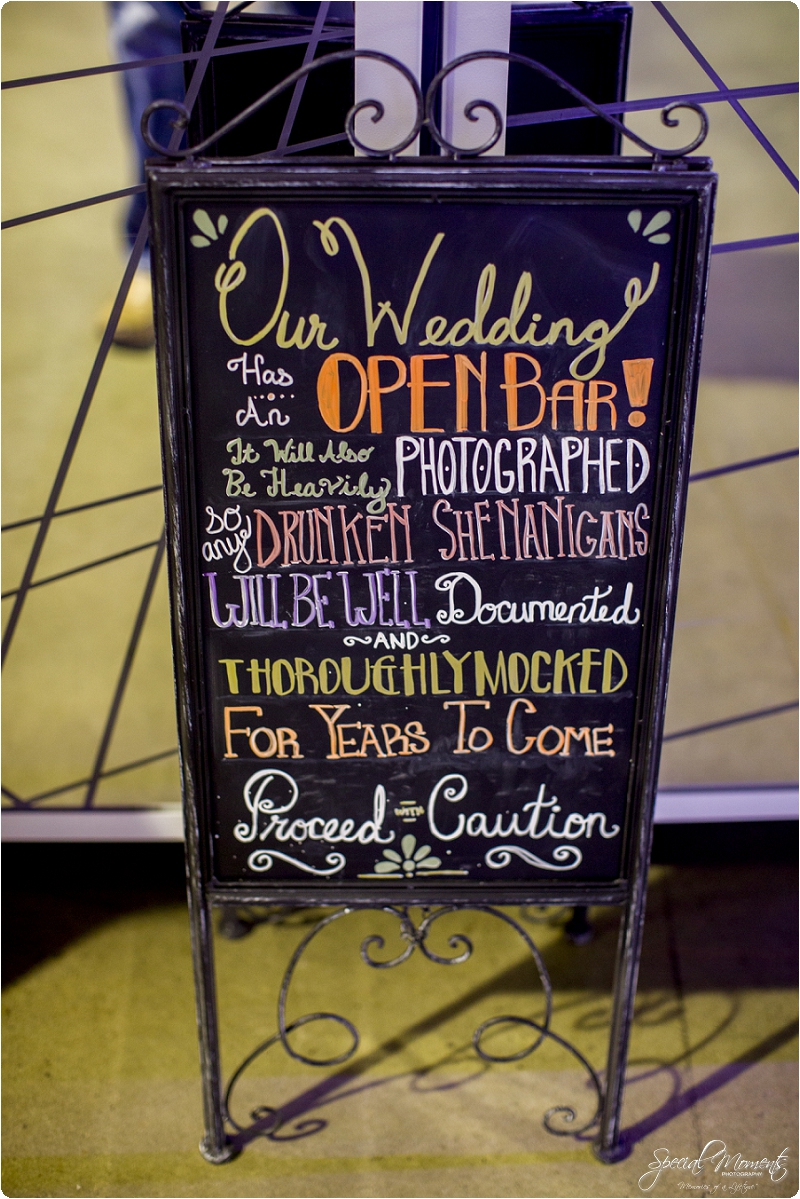 Our Wedding
Has
An OPEN BAR!
It Will Also
Be Heavily PHOTOGRAPHED
so
any DRUNKEN SHENANIGANS
WILL BE WELL Documented
~AND~
THOROUGHLY MOCKED
FOR YEARS TO COME
Proceed WITH Caution
Special Moments
PHOTOGRAPHY
"Memories of a Lifetime"